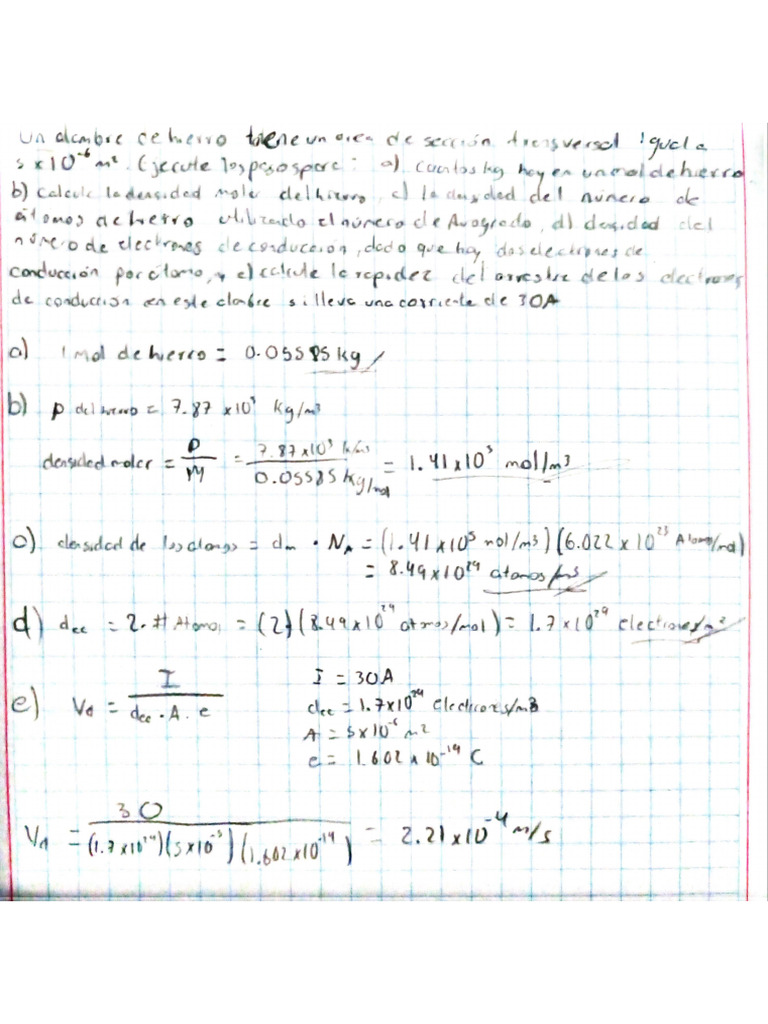 Un alambre de hierro tiene un area de sección transversal igual a
5 x 10⁻⁶ m². Ejecute los pasos para: a) Cuantos kg hay en un mol de hierro
b) Calcule la densidad molar del hierro, c) la densidad del número de
átomos de hierro utilizando el número de Avogrado, d) densidad del
número de electrones de conducción, dado que hay dos electrones de
conducción por átomo, y e) calcule la rapidez del arrastre de los electrones
de conducción en este alambre si lleva una corriente de 30A
a) 1 mol de hierro = 0.05585 kg
b) ρ del hierro = 7.87 x10³ kg/m³
densidad molar = ρ/M = 7.87x10³ kg/m³ / 0.05585 kg/mol = 1.41x10⁵ mol/m³
c) densidad de los atomos = dm · NA = (1.41x10⁵ mol/m³)(6.022x10²³ Atomo/mol)
= 8.49x10²⁹ atomos/m³
d) dec = 2·# Atomos = (2)(8.49x10²⁹ atmos/mol) = 1.7x10²⁹ electrones/m²
e) Vd = I / dec · A · e
I = 30A
dec = 1.7x10²⁹ electrores/m3
A = 5x10⁻⁶ m²
e = 1.602 x 10⁻¹⁹ C
Vd = 30 / (1.7x10²⁹)(5x10⁻⁵)(1.602x10⁻¹⁹) = 2.21x10⁻⁴ m/s